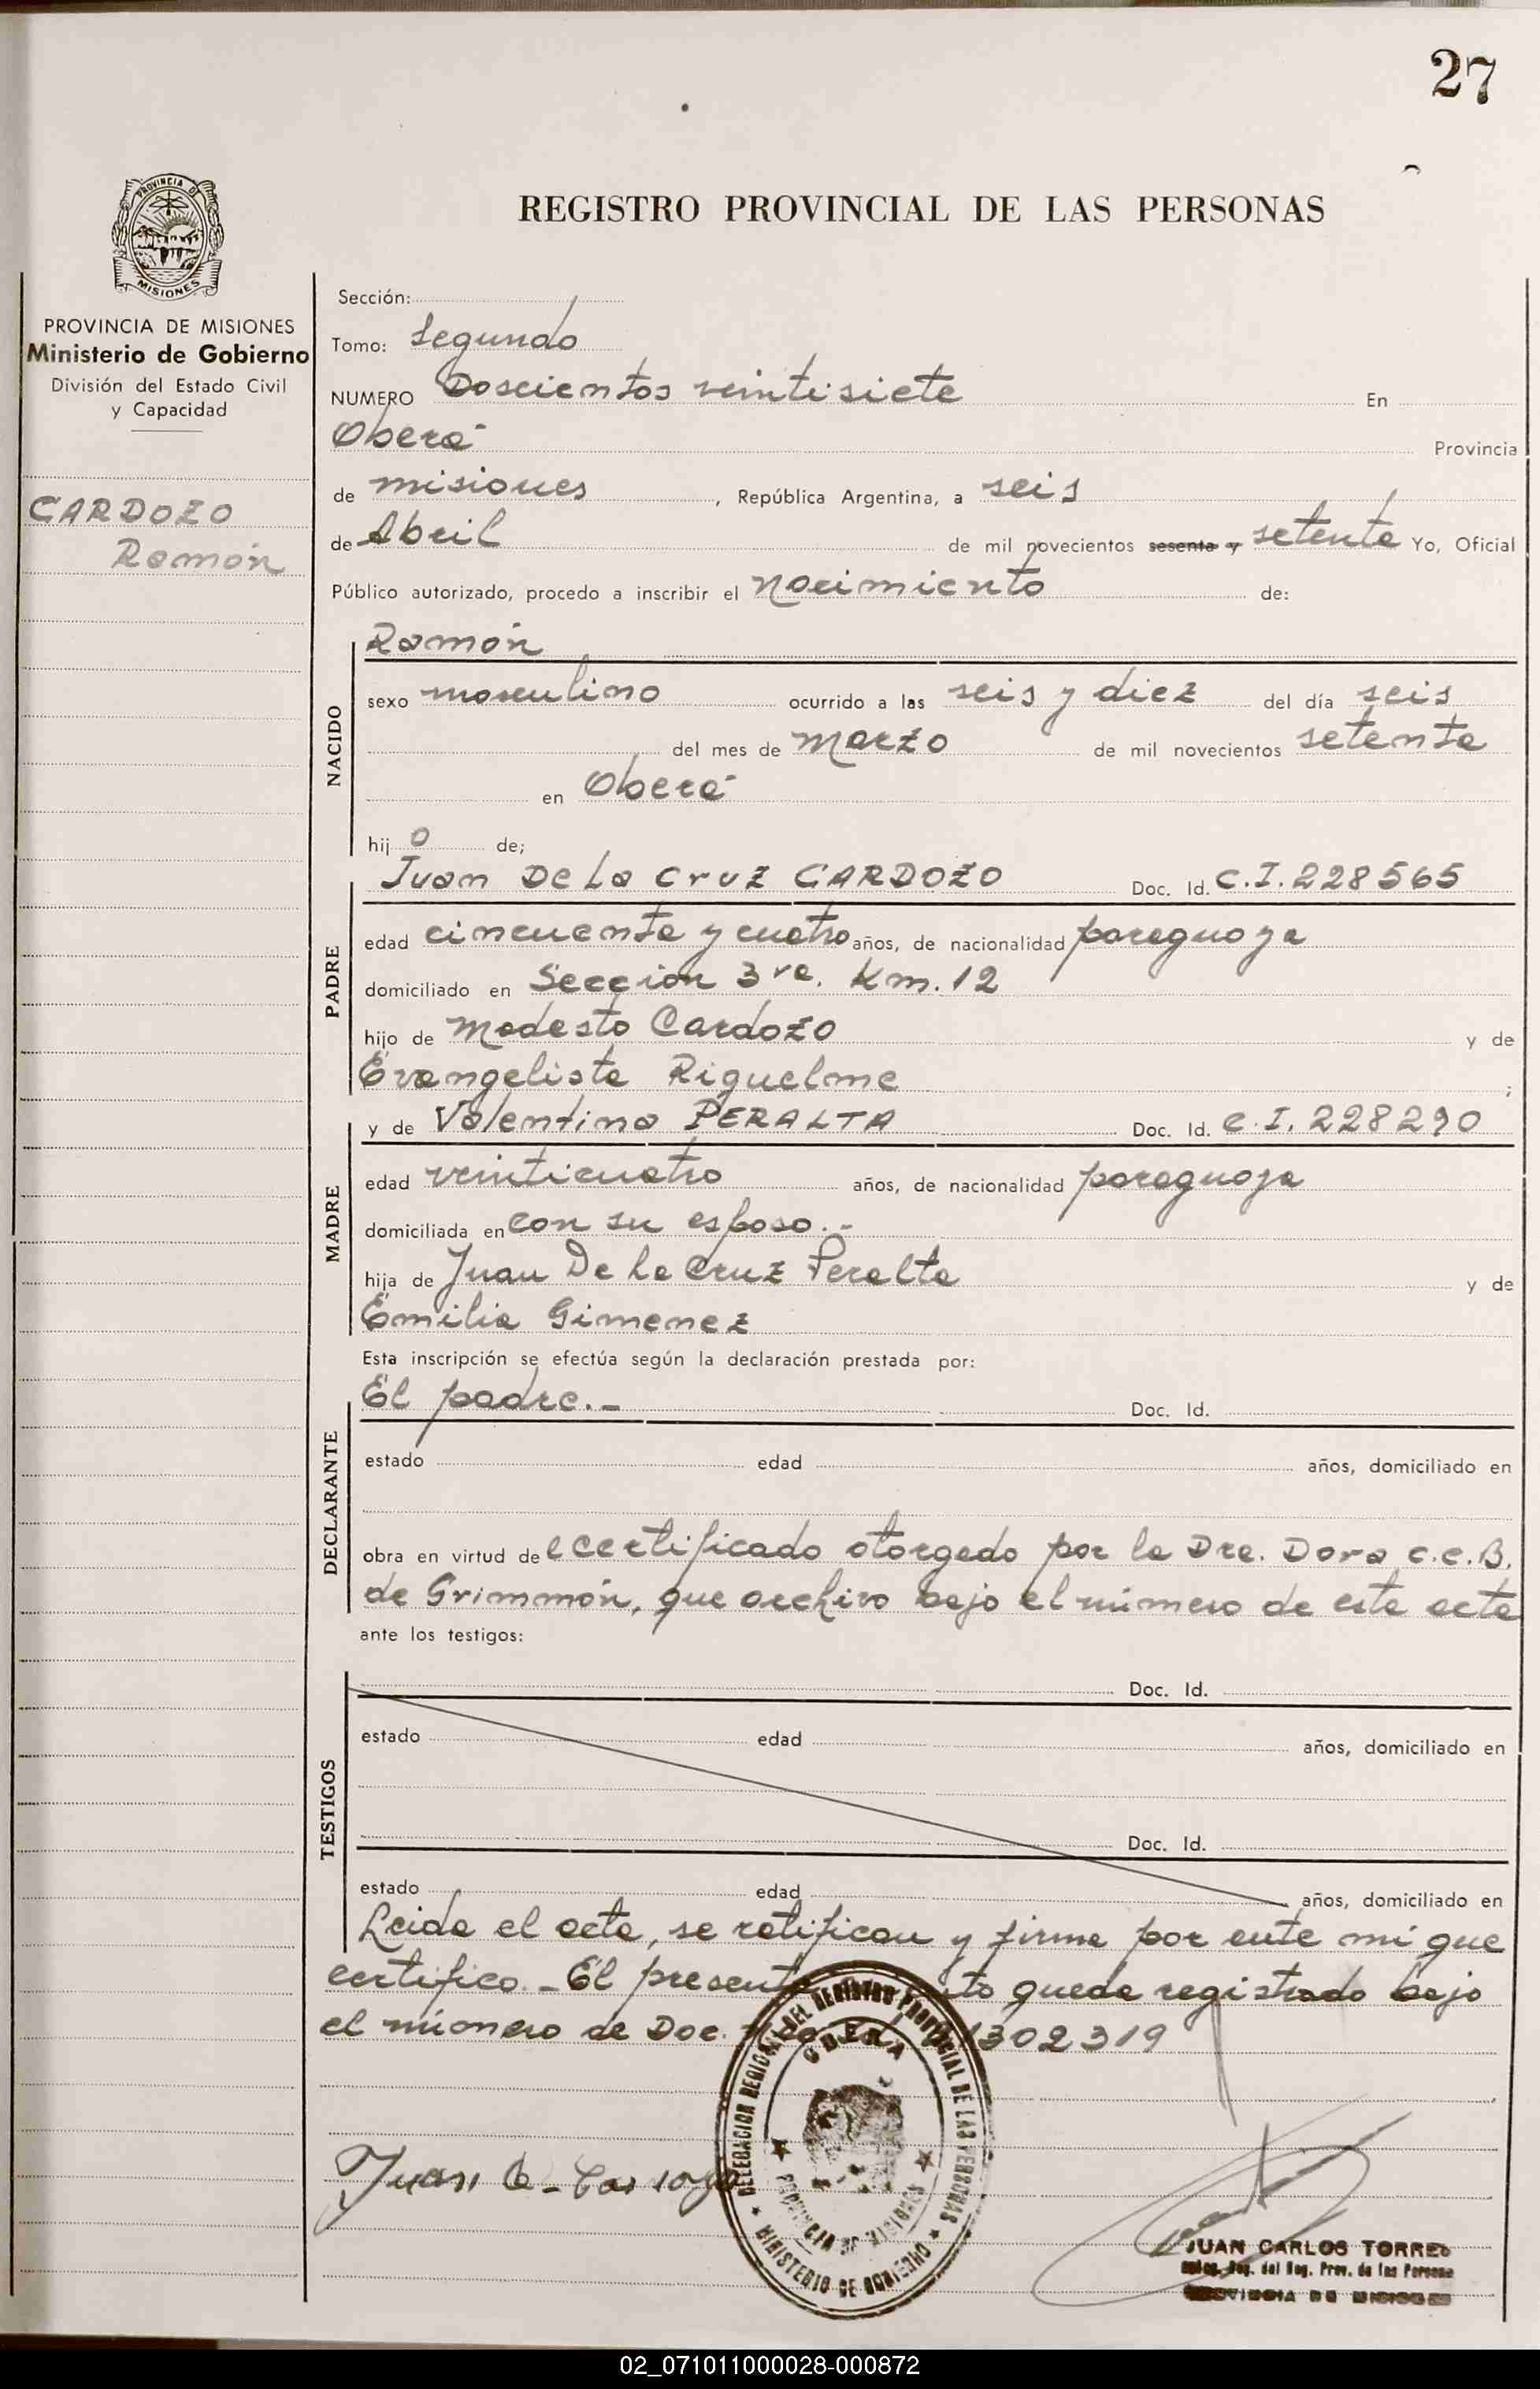 27
PROVINCIA DE
MISIONES
REGISTRO PROVINCIAL DE LAS PERSONAS
PROVINCIA DE MISIONES
Ministerio de Gobierno
División del Estado Civil
y Capacidad
CARDOZO
Ramón
Sección:
Tomo: Segundo
NUMERO Doscientos veintisiete En
Oberá Provincia
de misiones, República Argentina, a seis
de Abril de mil novecientos sesenta y setenta Yo, Oficial
Público autorizado, procedo a inscribir el nacimiento de:
NACIDO
Ramón
sexo masculino ocurrido a las seis y diez del día seis
del mes de marzo de mil novecientos setenta
en Oberá
hij o de;
PADRE
Juan De La Cruz CARDOZO Doc. Id. C.I. 228565
edad cincuenta y cuatro años, de nacionalidad paraguaya
domiciliado en Sección 3ra. Km. 12
hijo de Modesto Cardozo y de
Evangelista Riquelme ;
MADRE
y de Valentina PERALTA Doc. Id. C.I. 228290
edad veinticuatro años, de nacionalidad paraguaya
domiciliada en con su esposo.-
hija de Juan De La Cruz Peralta y de
Emilia Gimenez
Esta inscripción se efectúa según la declaración prestada por:
DECLARANTE
El padre.- Doc. Id.
estado edad años, domiciliado en
obra en virtud de certificado otorgado por la Dra. Dora C.C.B.
de Grimmón, que archivo bajo el número de esta acta
ante los testigos:
TESTIGOS
Doc. Id.
estado edad años, domiciliado en
Doc. Id.
estado edad años, domiciliado en
Leida el acta, se ratifican y firma por ante mí que
certifico.- El presente queda registrado bajo
el número de Doc. 1302319
DELEGACION REGIONAL DEL REGISTRO PROVINCIAL DE LAS PERSONAS
OBERA
PROVINCIA DE MISIONES
MINISTERIO DE GOBIERNO
Juan
JUAN CARLOS TORRES
Reg. del Reg. Prov. de las Personas
PROVINCIA DE MISIONES
02_071011000028-000872